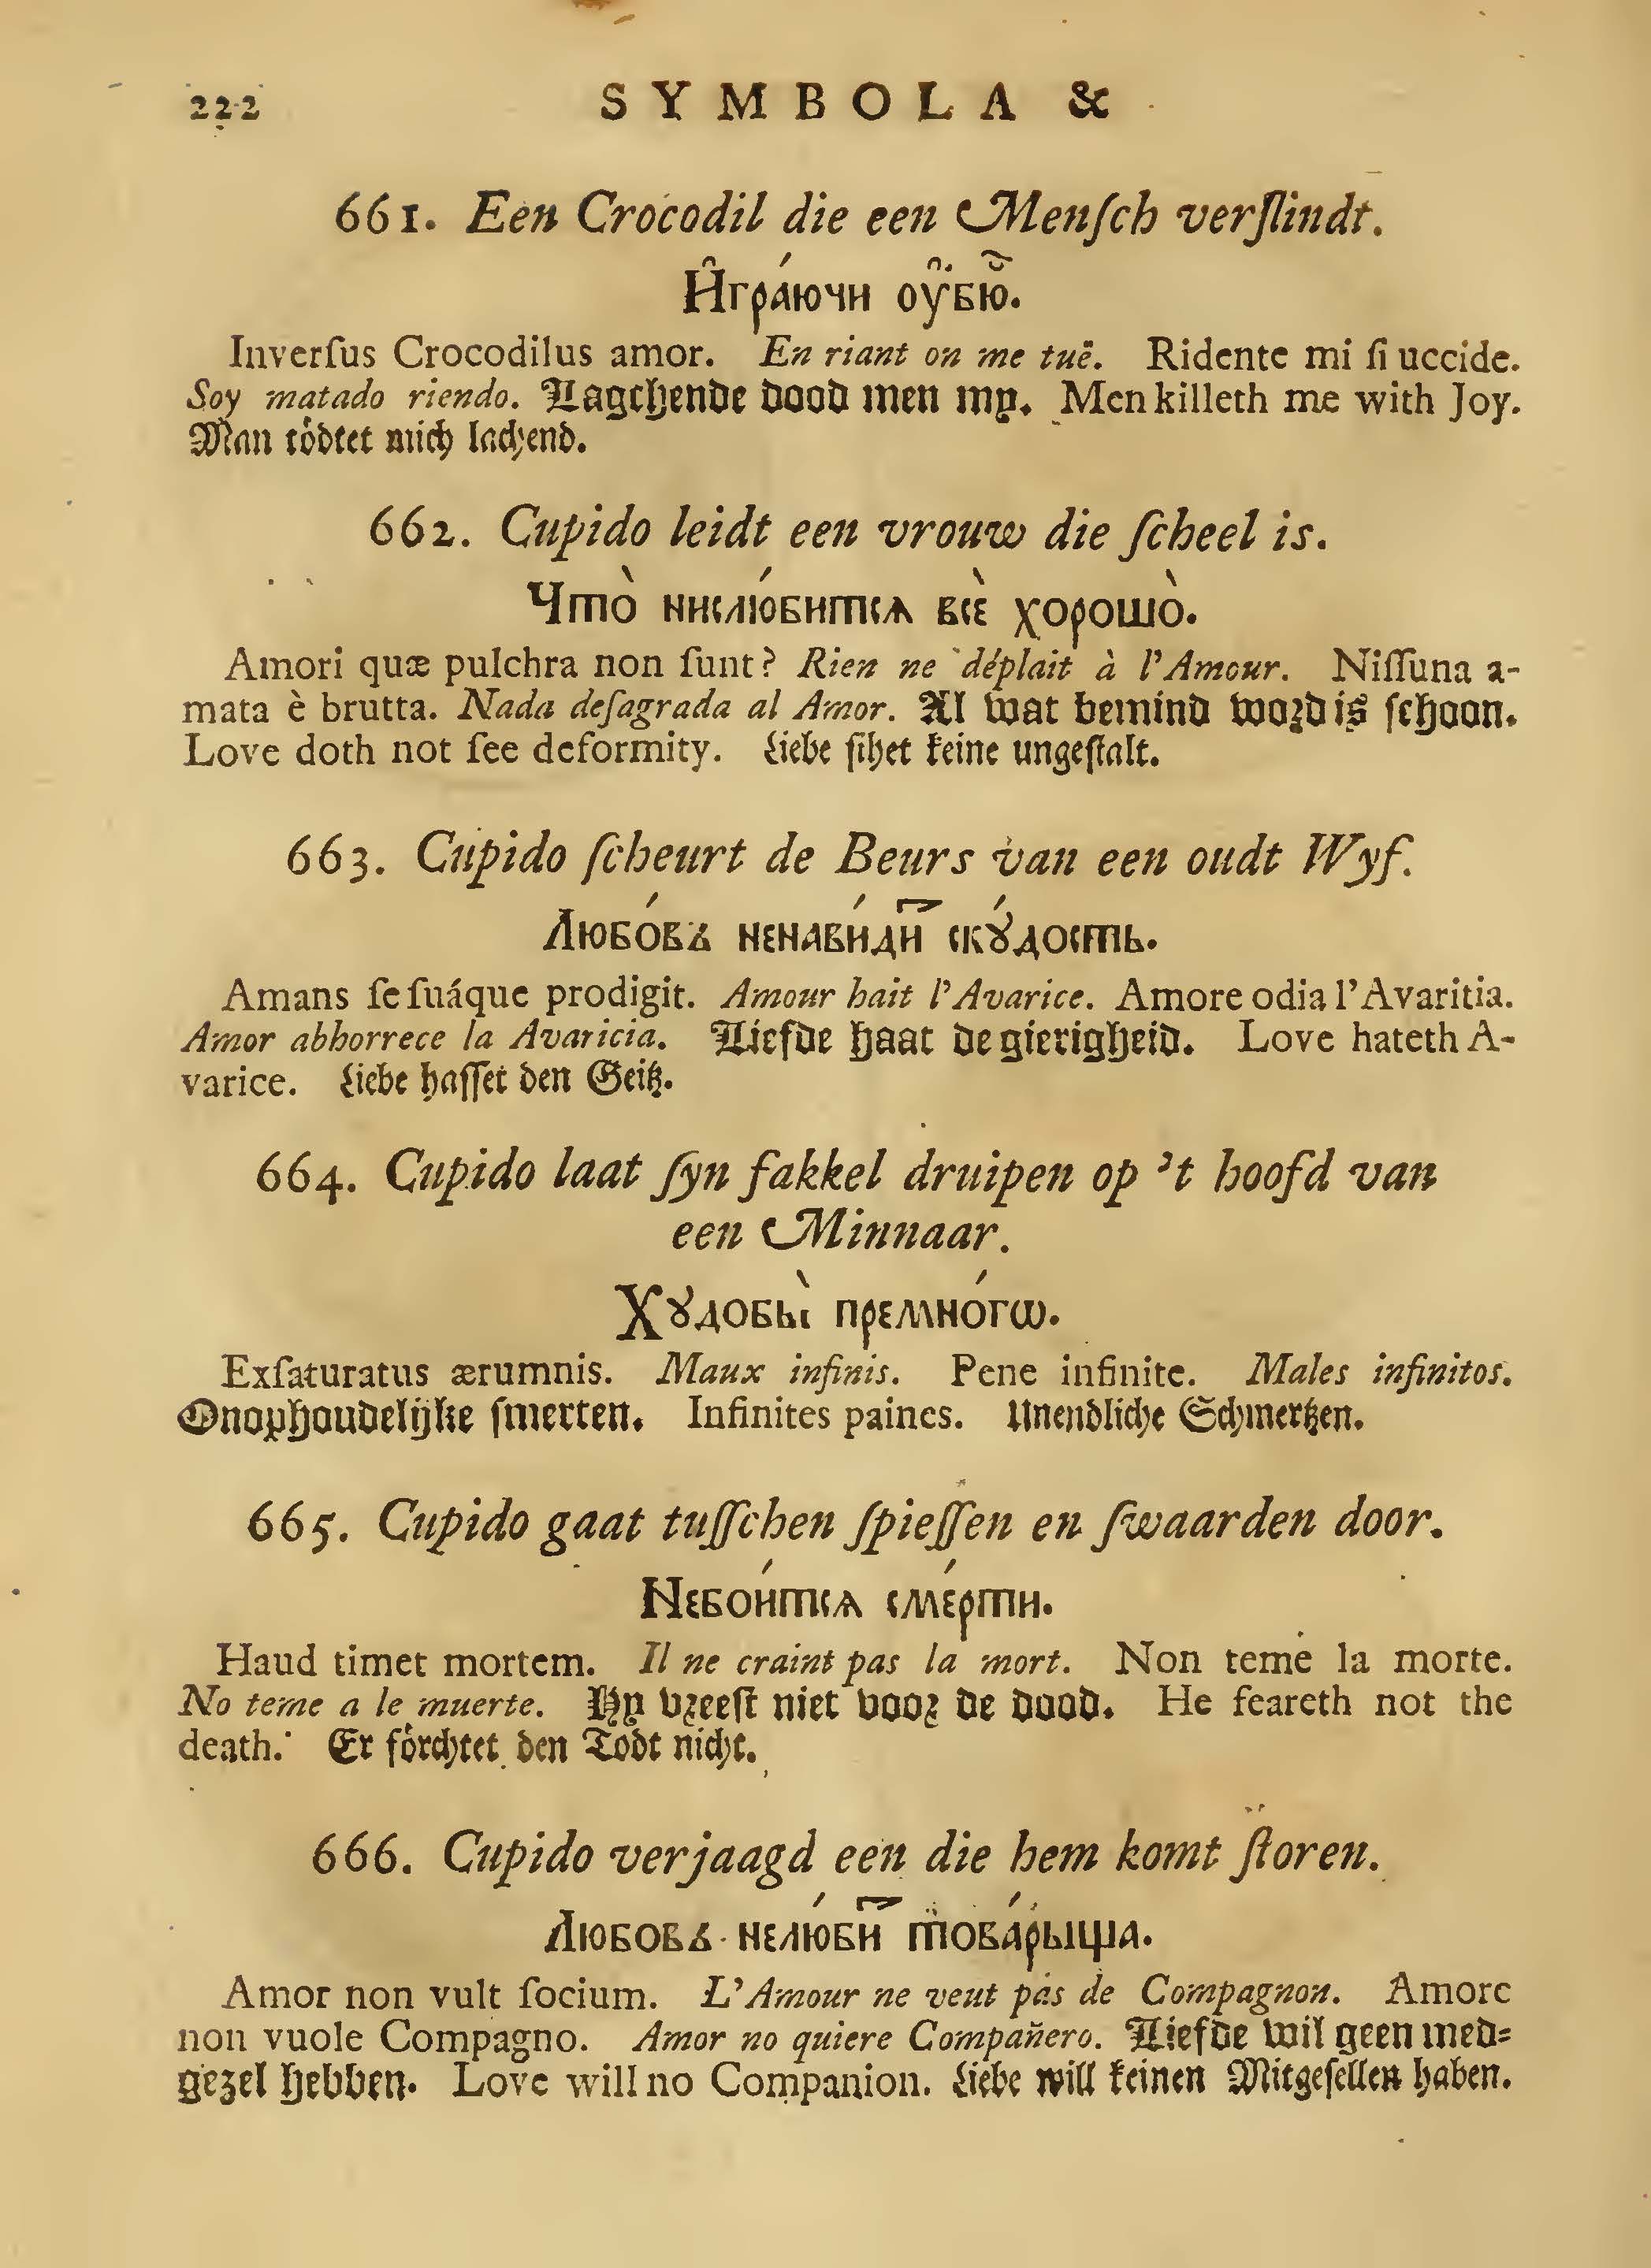 222 SYMBOLA &
661. Een Crocodil die een Menſch verſlindt.
И҆гра́ючи ᲂу҆бю̀.
Inverſus Crocodilus amor. En riant on me tuë. Ridente mi ſi uccide.
Soy matado riendo. Lagchende dood men my. Men killeth me with Joy.
Man tödtet mich lachend.
662. Cupido leidt een vrouw die ſcheel is.
Что̀ нислю́битсѧ всѐ хорошо̀.
Amori quæ pulchra non ſunt? Rien ne déplait à l'Amour. Niſſuna a-
mata è brutta. Nada deſagrada al Amor. Al wat bemind word is ſchoon.
Love doth not ſee deformity. Liebe ſihet keine ungeſtalt.
663. Cupido ſcheurt de Beurs van een oudt Wyf.
Любо́вь ненави́дит скꙋ́дость.
Amans ſe ſuáque prodigit. Amour hait l'Avarice. Amore odia l'Avaritia.
Amor abhorrece la Avaricia. Liefde haat de gierigheid. Love hateth A-
varice. Liebe haſſet den Geitz.
664. Cupido laat ſyn fakkel druipen op 't hoofd van
een Minnaar.
Хꙋдобы̀ премно́гѡ.
Exſaturatus ærumnis. Maux infinis. Pene infinite. Males infinitos.
Onophoudelijke ſmerten. Infinites paines. Unendliche Schmertzen.
665. Cupido gaat tuſſchen ſpieſſen en ſwaarden door.
Небои́тсѧ сме́рти.
Haud timet mortem. Il ne craint pas la mort. Non teme la morte.
No teme a le muerte. Hy vreeſt niet voor de dood. He feareth not the
death. Er förchtet den Todt nicht.
666. Cupido verjaagd een die hem komt ſtoren.
Любовь нелю́бит това́рыща.
Amor non vult ſocium. L'Amour ne veut pas de Compagnon. Amore
non vuole Compagno. Amor no quiere Compañero. Liefde wil geen med-
gezel hebben. Love will no Companion. Liebe will keinen Mitgeſellen haben.